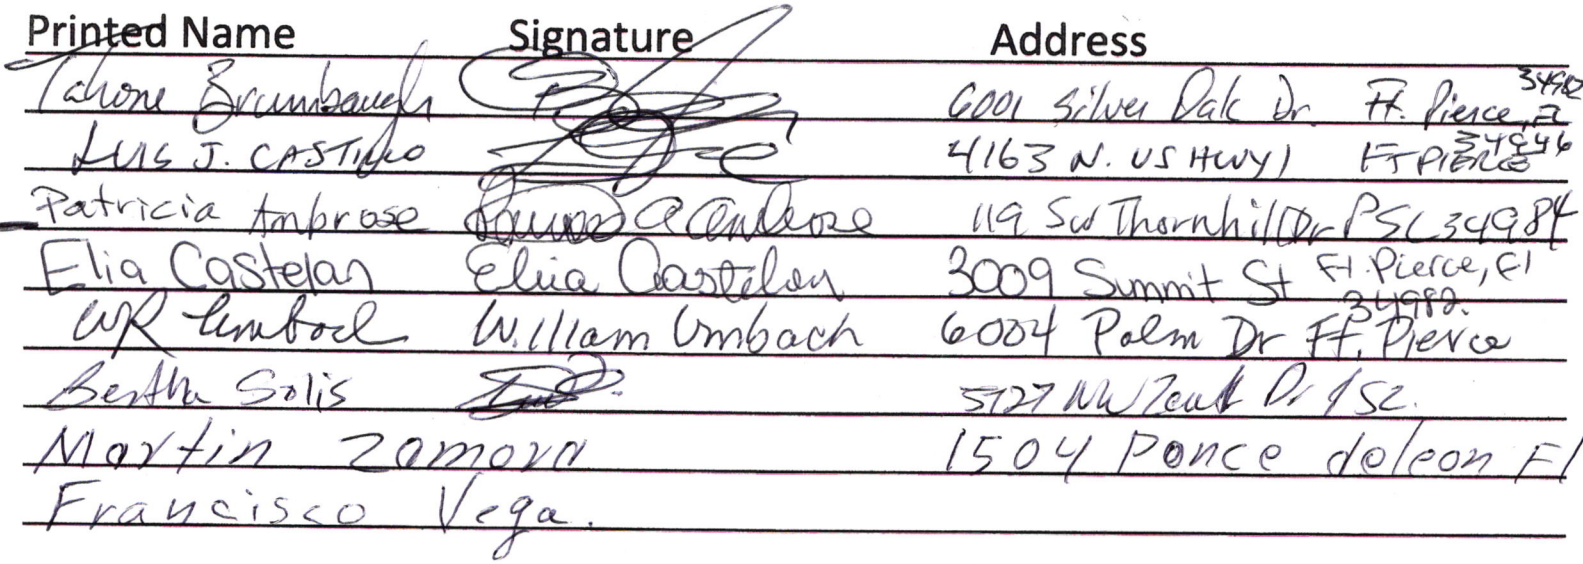 Printed Name Signature Address
Tahone Brumbaugh 6001 Silver Oak Dr. Ft. Pierce, FL 34982
LUIS J. CASTILLO 4163 N. US HWY 1 FT PIERCE 34946
Patricia Ambrose Ambrose 119 SW Thornhill Dr PSL 34984
Elia Castelan Elia Castelan 3009 Summit St Ft. Pierce, Fl 34982.
WR Umbach William Umbach 6004 Palm Dr Ft. Pierce
Bertha Solis 5727 NW Dr
Martin Zamora 1504 Ponce deleon Fl
Francisco Vega.